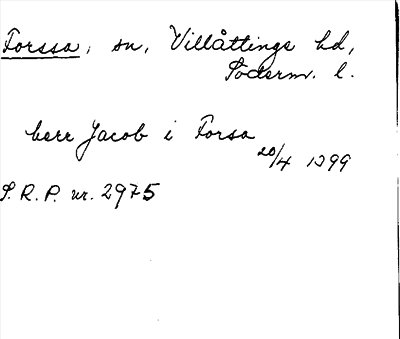 Forssa, sn, Villåttinge hd,
Söderm. l.
herr Jacob i Forsa
20/4 1399
S.R.P. nr. 2975